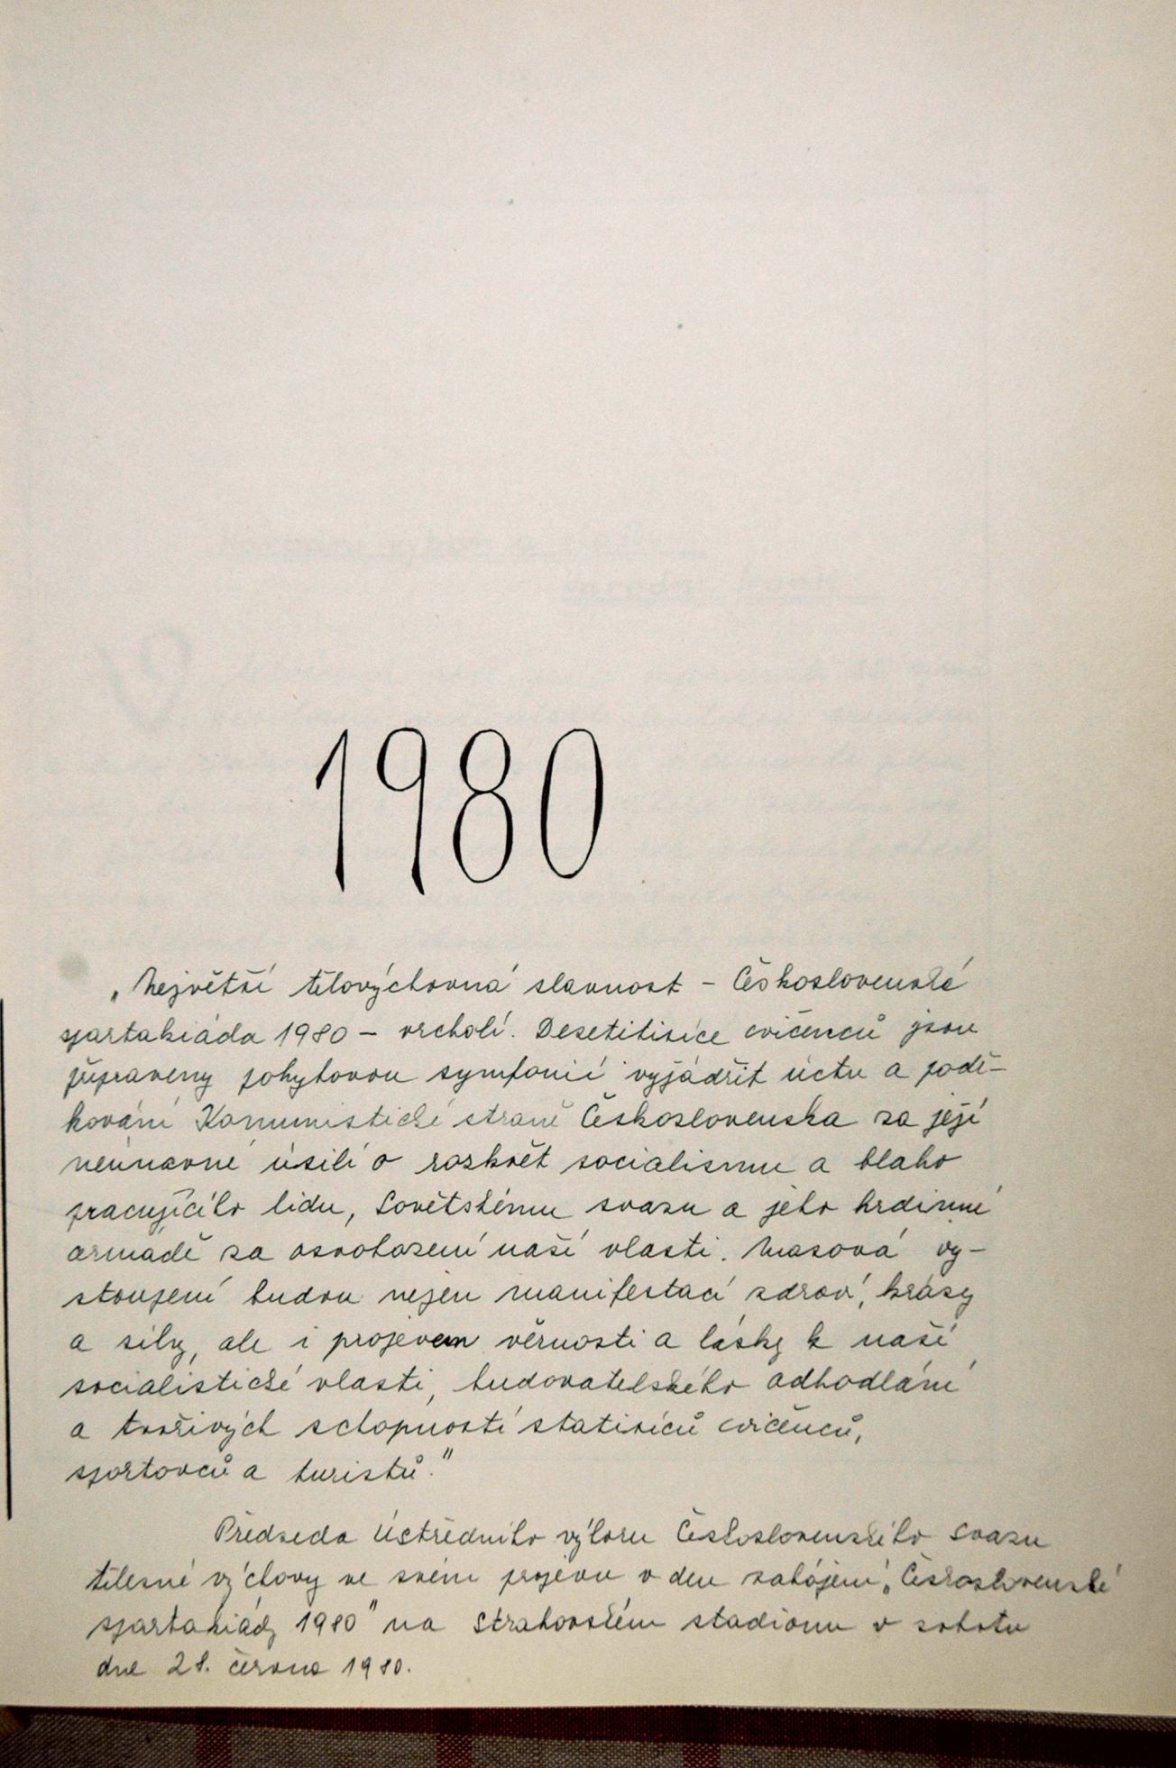 1980
„Největší tělovýchovná slavnost – Československá
spartakiáda 1980 – vrcholí. Desetitisíce cvičenců jsou
připraveny pohybovou symfonií vyjádřit úctu a podě-
kování Komunistické straně Československa za její
neúnavné úsilí o rozkvět socialismu a blaho
pracujícího lidu, Sovětskému svazu a jeho hrdinné
armádě za osvobození naší vlasti. Masová vy-
stoupení budou nejen manifestací zdraví, krásy
a síly, ale i projevem věrnosti a lásky k naší
socialistické vlasti, budovatelského odhodlání
a tvořivých schopností statisíců cvičenců,
sportovců a turistů."
Předseda Ústředního výboru Československého svazu
tělesné výchovy ve svém projevu v den zahájení „Československé
spartakiády 1980" na Strahovském stadionu v sobotu
dne 28. června 1980.